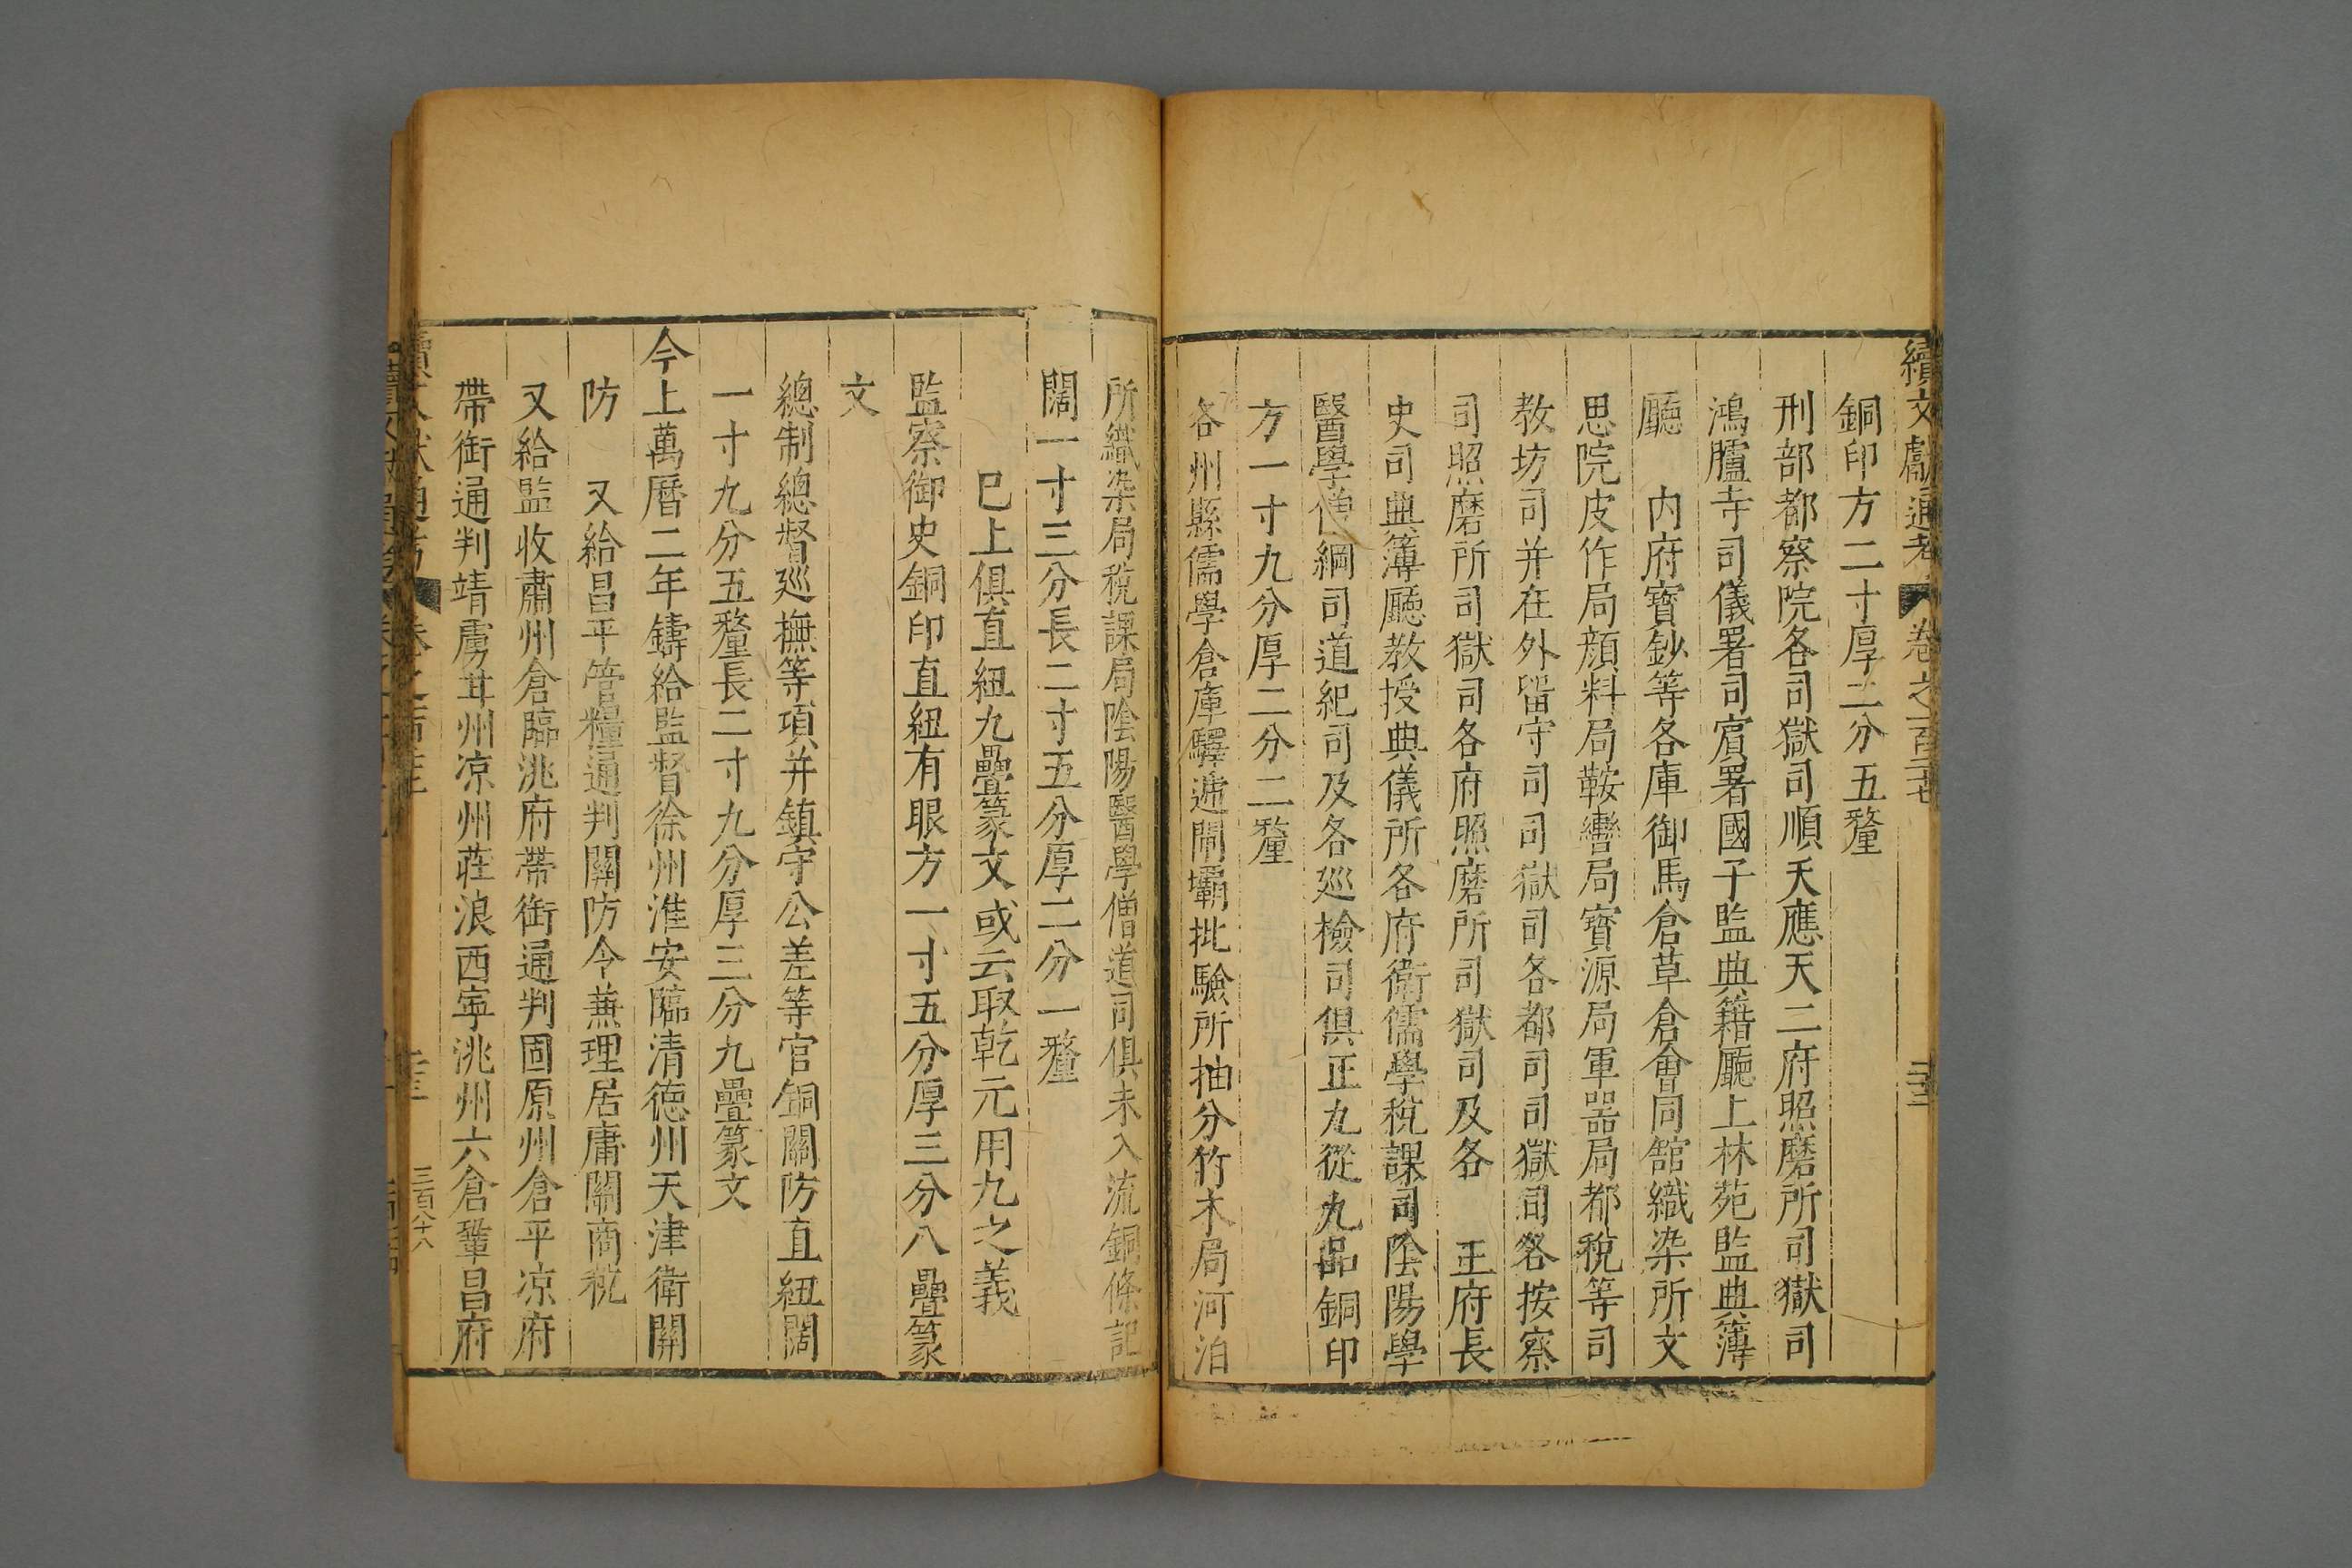 續文獻通考 卷之一百二七
銅印方二寸厚二分五釐
刑部都察院各司獄司順天應天二府照磨所司獄司
鴻臚寺司儀署司賓署國子監典籍廳上林苑監典簿
廳 内府寶鈔等各庫御馬倉草倉會同館織染所文
思院皮作局顔料局鞍轡局寶源局軍器局都稅等司
教坊司并在外留守司司獄司各都司司獄司各按察
司照磨所司獄司各府照磨所司獄司及各 王府長
史司典簿廳教授典儀所各府衛儒學稅課司陰陽學
醫學僧綱司道紀司及各巡檢司俱正九從九品銅印
方一寸九分厚二分二釐
各州縣儒學倉庫驛遞閘壩批驗所抽分竹木局河泊
所織染局稅課局陰陽醫學僧道司俱未入流銅條記
闊一寸三分長二寸五分厚二分一釐
已上俱直紐九疊篆文或云取乾元用九之義
監察御史銅印直紐有眼方一寸五分厚三分八疊篆
文
總制總督巡撫等項并鎮守公差等官銅關防直紐闊
一寸九分五釐長二寸九分厚三分九疊篆文
今上萬曆二年鑄給監督徐州淮安臨清德州天津衛關
防 又給昌平管糧通判關防今兼理居庸關商稅
又給監收肅州倉臨洮府帶銜通判固原州倉平凉府
帶銜通判靖虜甘州凉州莊浪西寧洮州六倉鞏昌府
三百八十八